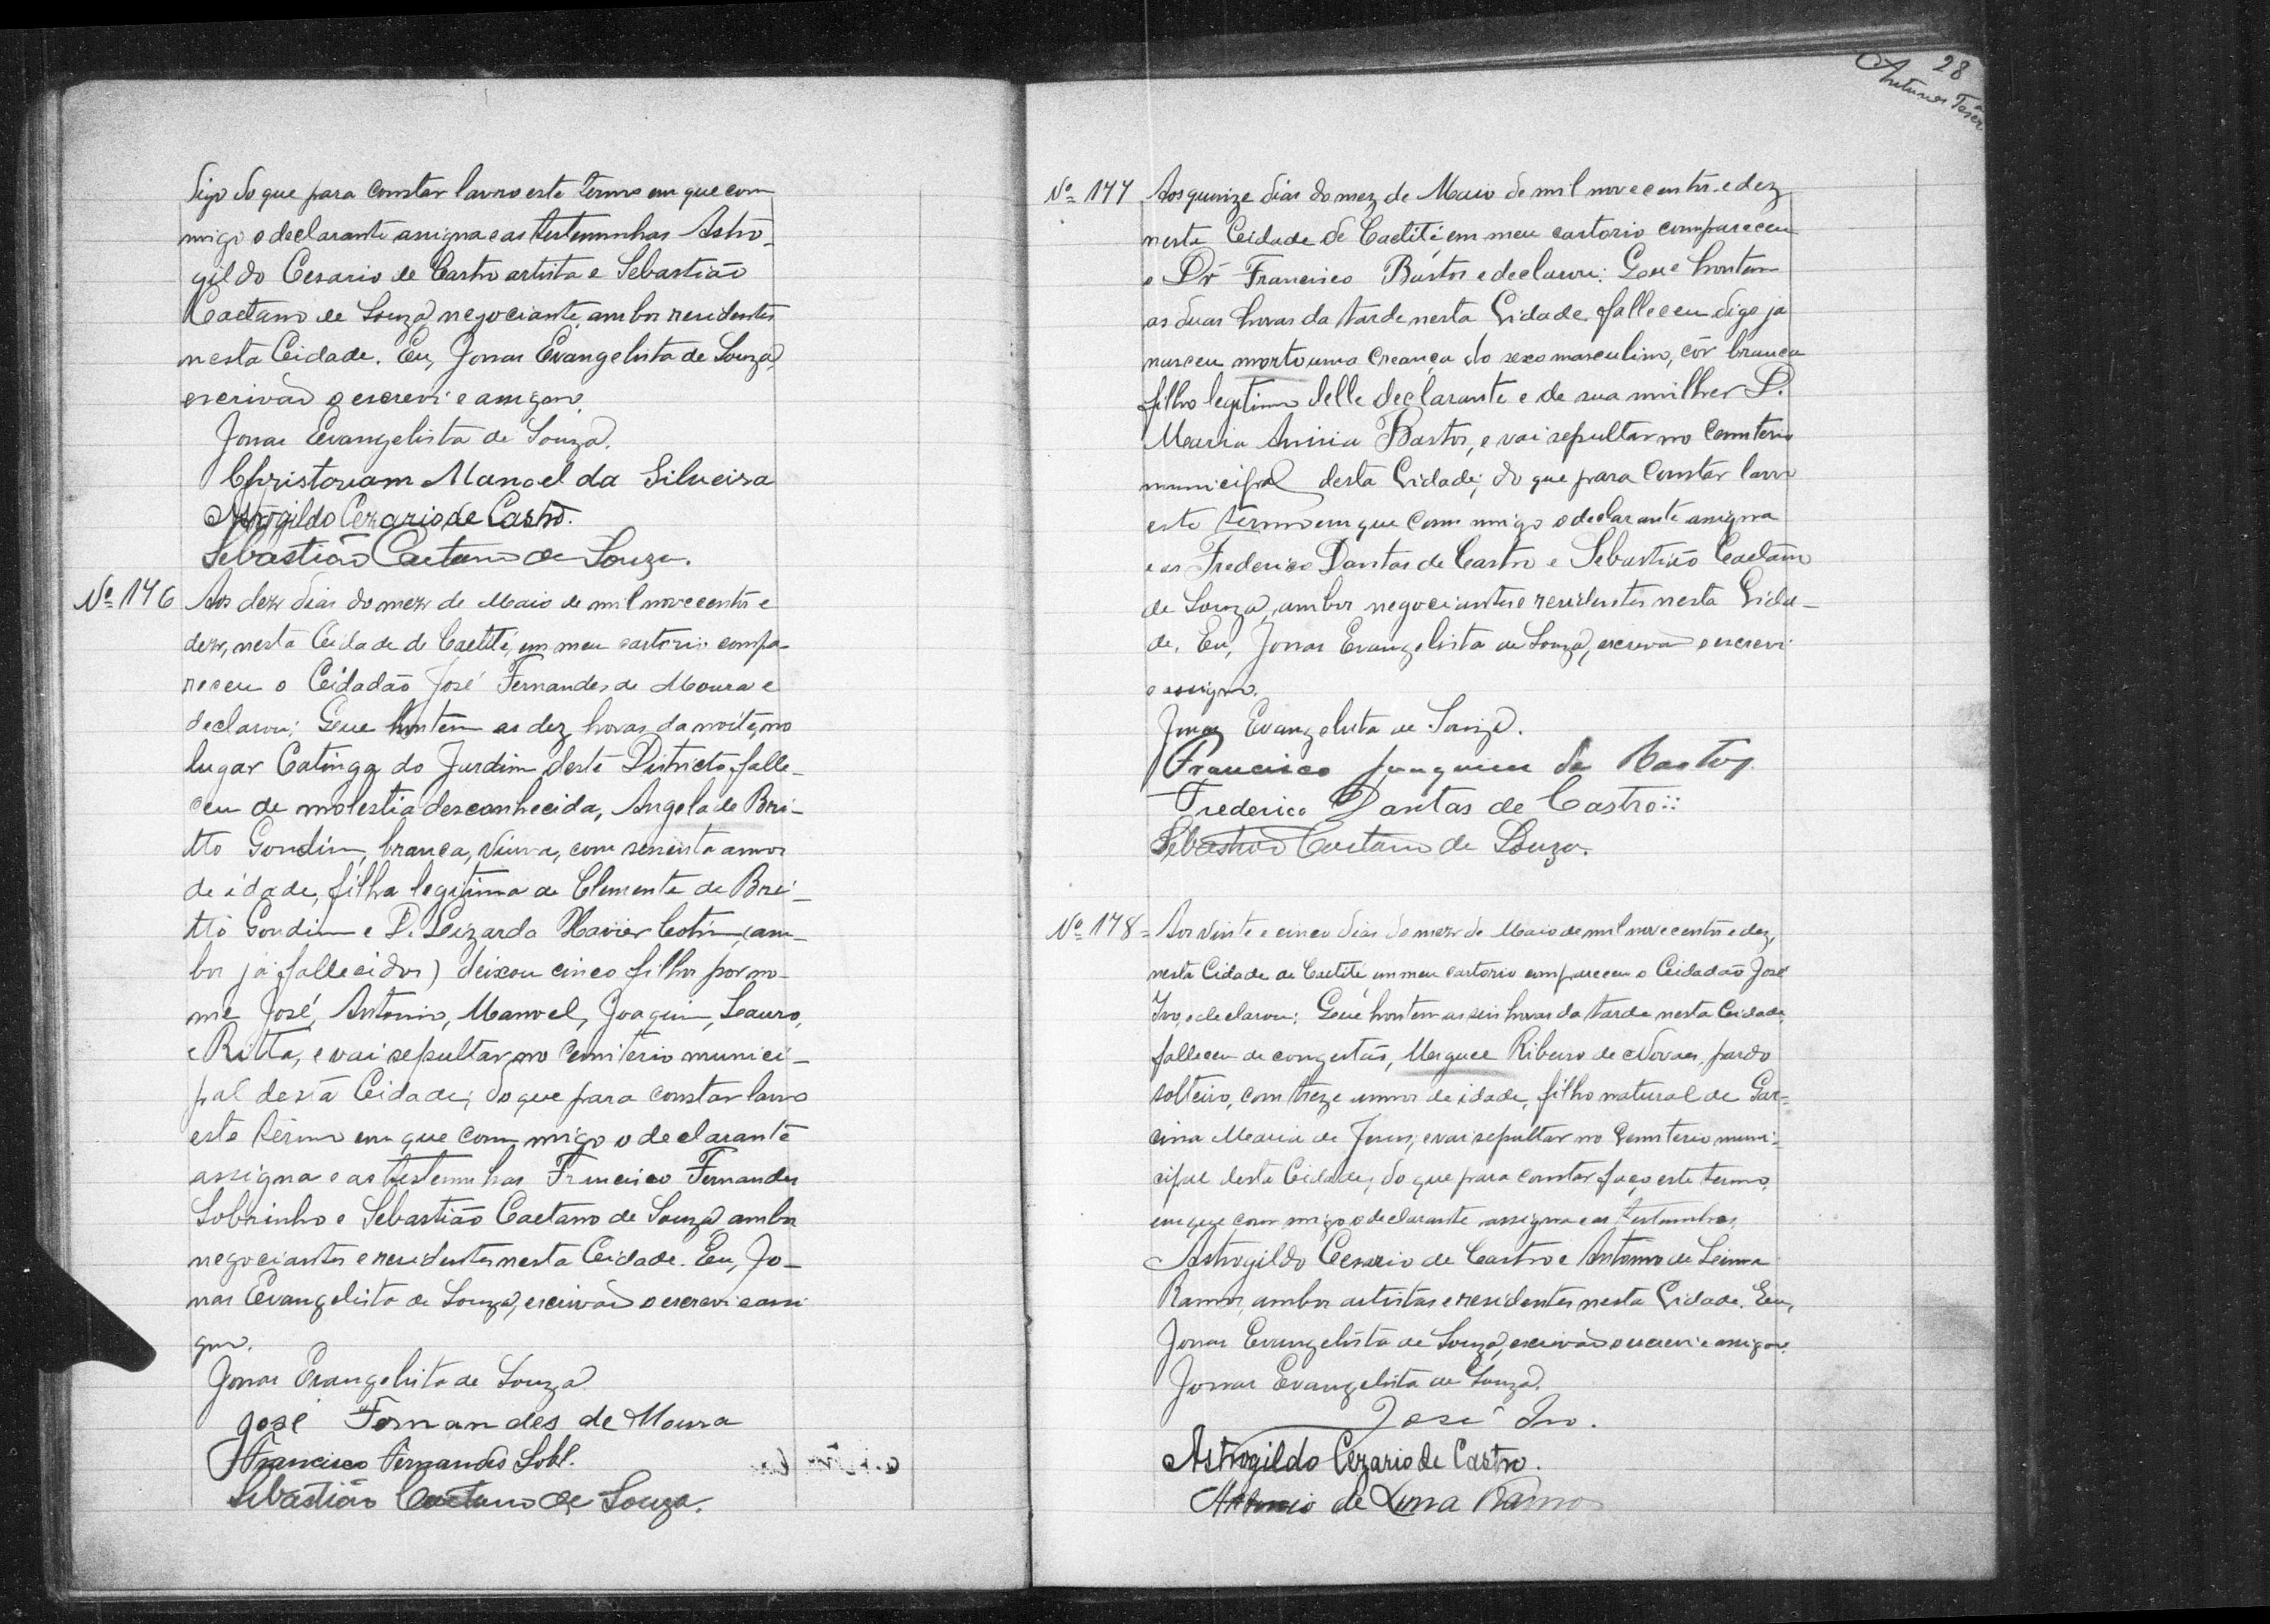 digo do que para constar lavro este termo em que com
migo o declarante assigna e as testemunhas Astro-
gildo Cesario de Castro artista e Sebastião
Caetano de Souza, negociante, ambos residentes
nesta Cidade. Eu, Jonas Evangelista de Souza,
escrivão o escrevi e assigno.
Jonas Evangelista de Souza.
Christovam Manoel da Silveira
Astrogildo Cezario de Castro.
Sebastião Caetano de Souza.
Nº 146 Aos dez dias do mez de Maio de mil novecentos e
dez, nesta Cidade de Caetité, em meu cartorio compa-
receu o Cidadão José Fernandes de Moura e
declarou: Que hontem as dez horas da noite, no
lugar Catinga do Jardim deste Districto, falle-
ceu de molestia desconhecida, Angela de Bri-
tto Gondim, branca, viuva, com sessenta annos
de idade, filha legitima de Clemente de Bri-
tto Gondim e D. Leizarda Xavier Cotrim (am-
bos já fallecidos) deixou cinco filhos por no-
me José, Antonio, Manoel, Joaquim, Lauro,
e Ritta, e vai sepultar no Cemiterio munici-
pal desta Cidade; do que para constar lavro
este termo em que com migo o declarante
assigna e as testemunhas Francisco Fernandes
Sobrinho e Sebastião Caetano de Souza, ambos
negociantes e residentes nesta Cidade. Eu, Jo-
nas Evangelista de Souza, escrivão o escrevi e assi
gno.
Jonas Evangelista de Souza.
José Fernandes de Moura
Francisco Fernandes Sobr.
Sebastião Caetano de Souza.
28
Antunes
Nº 147 Aos quinze dias do mez de Maio de mil novecentos e dez
nesta Cidade de Caetité em meu cartorio compareceu
o Dr Francisco Bastos e declarou: Que hontem
as duas horas da tarde nesta Cidade, falleceu digo ja
nasceu morto uma creança do sexo masculino, côr branca
filho legitimo delle declarante e de sua mulher D.
Maria Anisia Bastos, e vai sepultar no Cemiterio
municipal desta Cidade; do que para constar lavro
este termo em que com migo o declarante assigna
e as Frederico Dantas de Castro e Sebastião Caetano
de Souza, ambos negociantes e residentes nesta Cida-
de. Eu, Jonas Evangelista de Souza, escrivão o escrevi
e assigno.
Jonas Evangelista de Souza.
Francisco Junqueira de Bastos
Frederico Dantas de Castro::
Sebastião Caetano de Souza.
Nº 148 = Aos vinte e cinco dias do mez de Maio de mil novecentos e dez,
nesta Cidade de Caetité em meu cartorio compareceu o Cidadão José
Ivo, e declarou: Que hontem as seis horas da tarde nesta Cidade,
falleceu de congestão, Miguel Ribeiro de Novaes, pardo
solteiro, com treze annos de idade, filho natural de Gar-
cina Maria de Jesus; e vai sepultar no Cemiterio muni-
cipal desta Cidade; do que para constar faço este termo,
em que com migo o declarante assigna e as testemunhas,
Astrogildo Cesario de Castro e Antonio de Lima
Ramos, ambos artistas e residentes nesta Cidade. Eu,
Jonas Evangelista de Souza, escrivão o escrevi e assigno.
Jonas Evangelista de Souza.
José Ivo.
Astrogildo Cezario de Castro.
Antonio de Lima Ramos